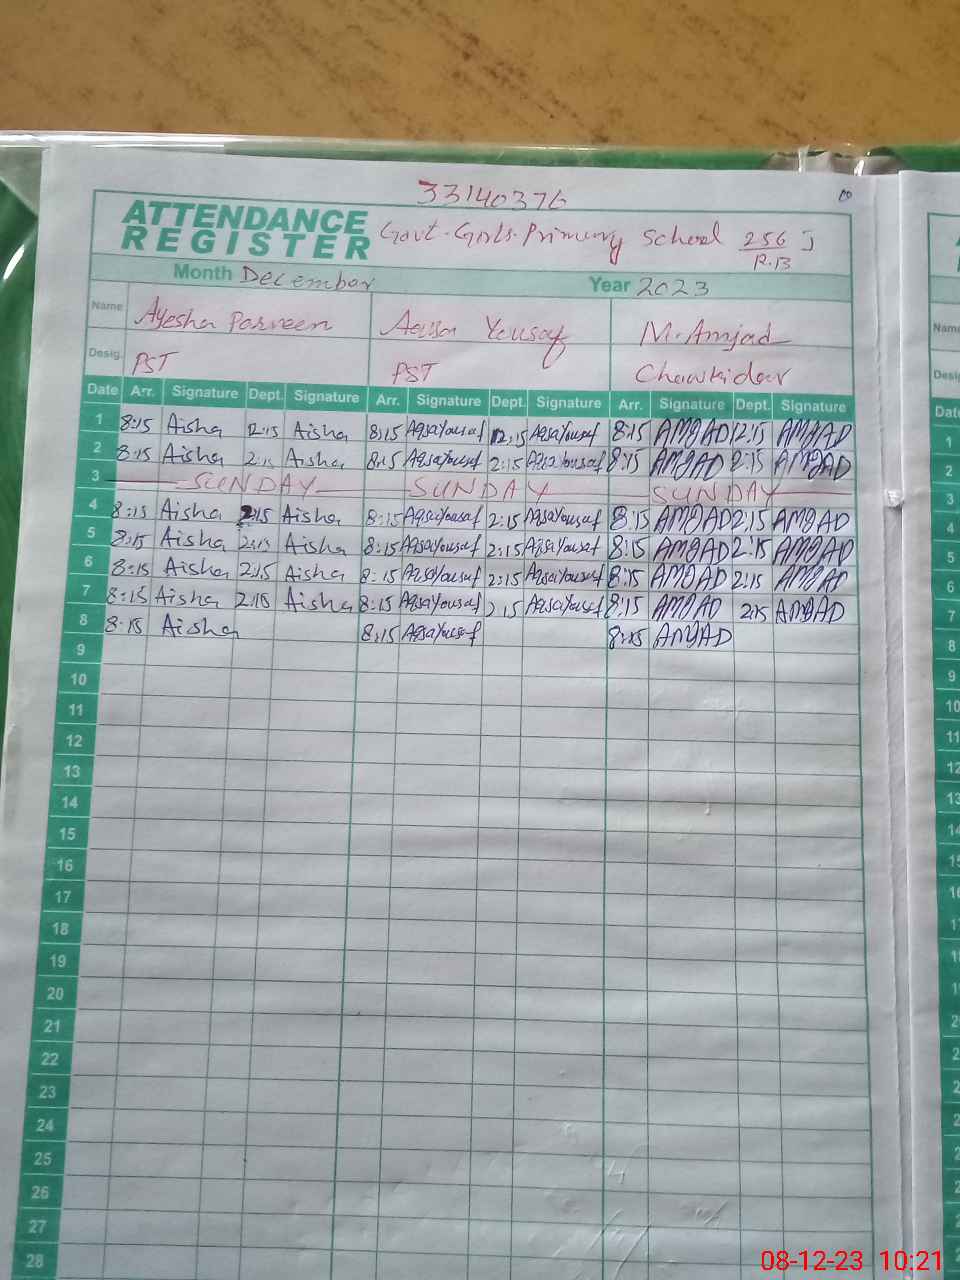 33140376
ATTENDANCE
REGISTER
Govt. Girls. Primary School 256 J
R.B
Month December Year 2023
Name Ayesha Parveen Aqsa Yousaf M. Amjad
Desig. PST PST Chowkidar
Date Arr. Signature Dept. Signature Arr. Signature Dept. Signature Arr. Signature Dept. Signature
1 8:15 Aisha 12:15 Aisha 8:15 AqsaYousaf 12:15 AqsaYousaf 8:15 AMJAD 12:15 AMJAD
2 8:15 Aisha 2:15 Aisha 8:15 AqsaYousaf 2:15 AqsaYousaf 8:15 AMJAD 2:15 AMJAD
3 SUNDAY SUNDAY SUNDAY
4 8:15 Aisha 2:15 Aisha 8:15 AqsaYousaf 2:15 AqsaYousaf 8:15 AMJAD 2:15 AMJAD
5 8:15 Aisha 2:15 Aisha 8:15 AqsaYousaf 2:15 AqsaYousaf 8:15 AMJAD 2:15 AMJAD
6 8:15 Aisha 2:15 Aisha 8:15 AqsaYousaf 2:15 AqsaYousaf 8:15 AMJAD 2:15 AMJAD
7 8:15 Aisha 2:15 Aisha 8:15 AqsaYousaf 2:15 AqsaYousaf 8:15 AMJAD 2:15 AMJAD
8 8:15 Aisha 8:15 AqsaYousaf 8:15 AMJAD
9
10
11
12
13
14
15
16
17
18
19
20
21
22
23
24
25
26
27
28
Name
Desig
Date
1
2
3
4
5
6
7
8
9
10
11
12
13
14
15
08-12-23 10:21